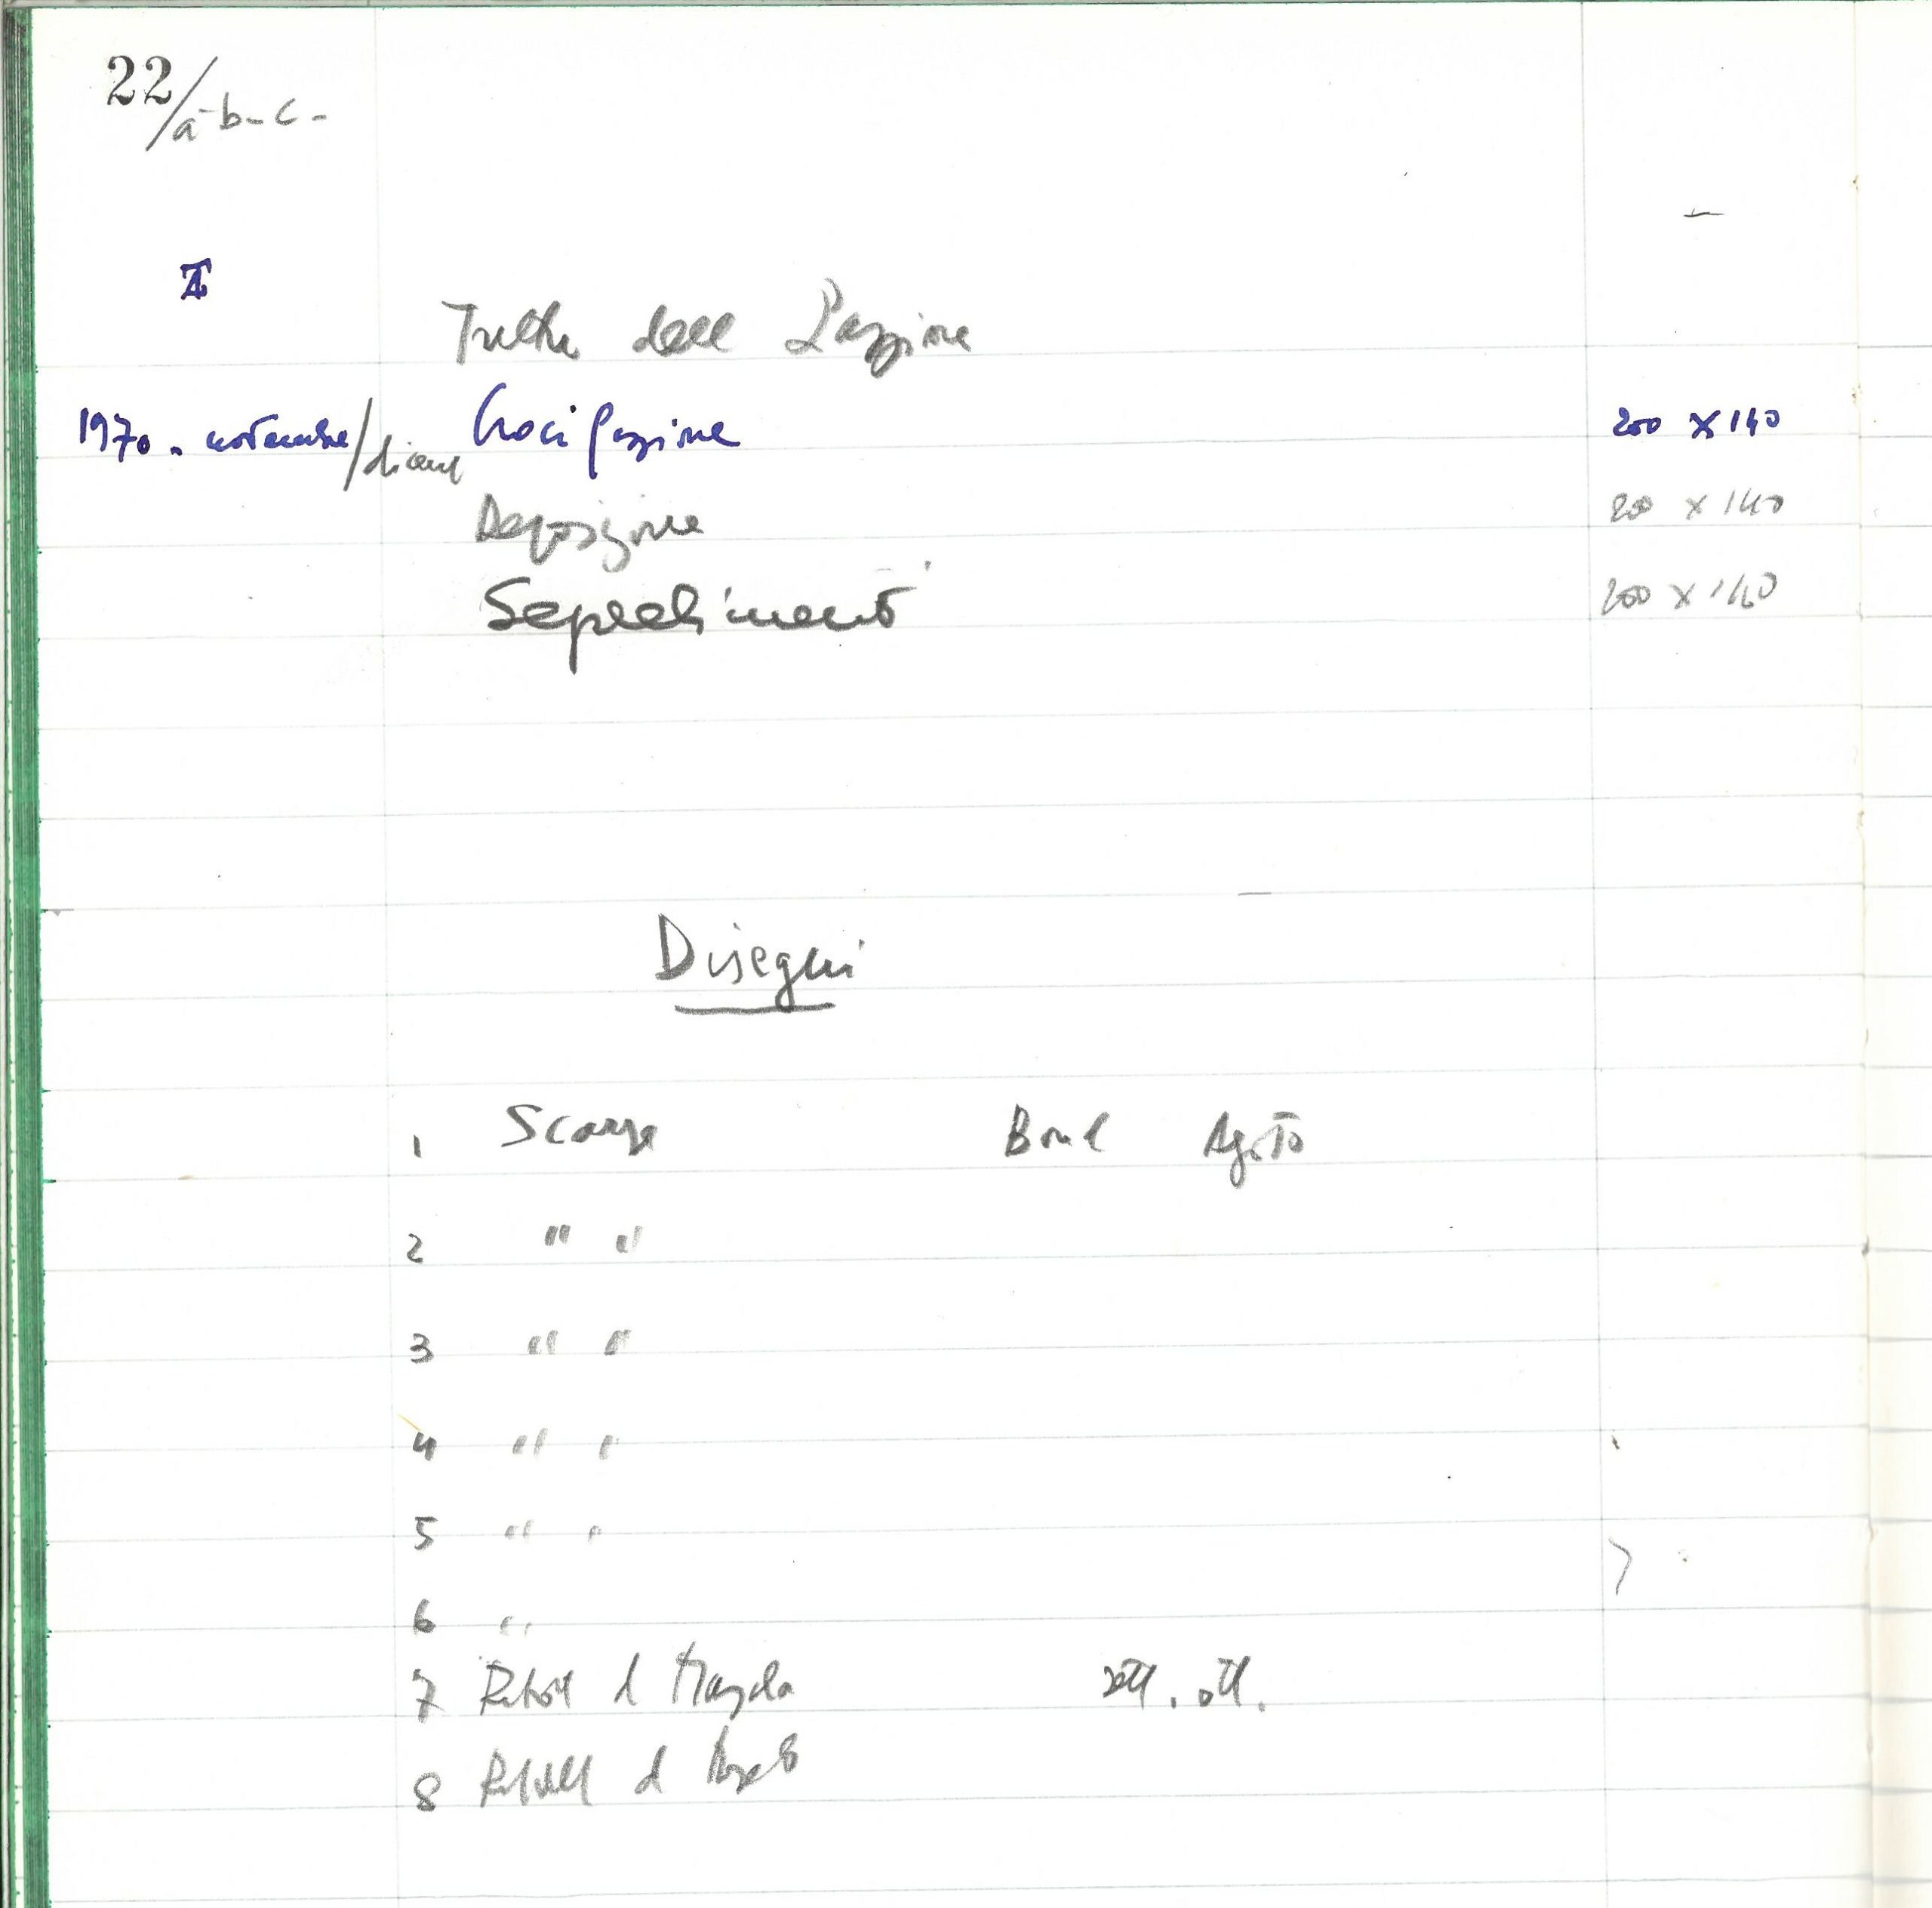 22/a-b-c-
Trittico della Passione
1970 - novembre/dicem Crocifissione 200 x 140
Deposizione 200 x 140
Seppellimento 200 x 140
Disegni
1 Scarpe Agosto
2 " "
3 " "
4 " "
5 " "
6 "
7 d Magda sett. ott.
8 d